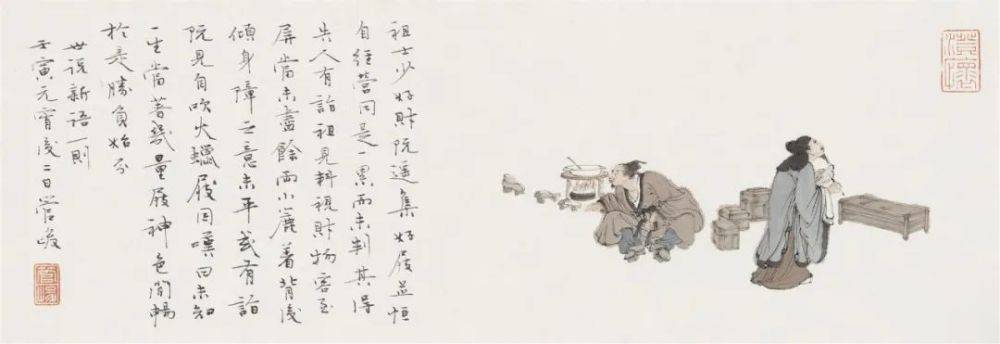 祖士少好財阮遥集好屐並恒
自經營同是一累而未判其得
失人有詣祖見料視財物客至
屏當未盡餘兩小簏着背後
傾身障之意未平或有詣
阮見自吹火蠟屐因嘆曰未知
一生當著幾量屐神色閒暢
於是勝負始分
世说新语一則
壬寅元宵後二日管峻